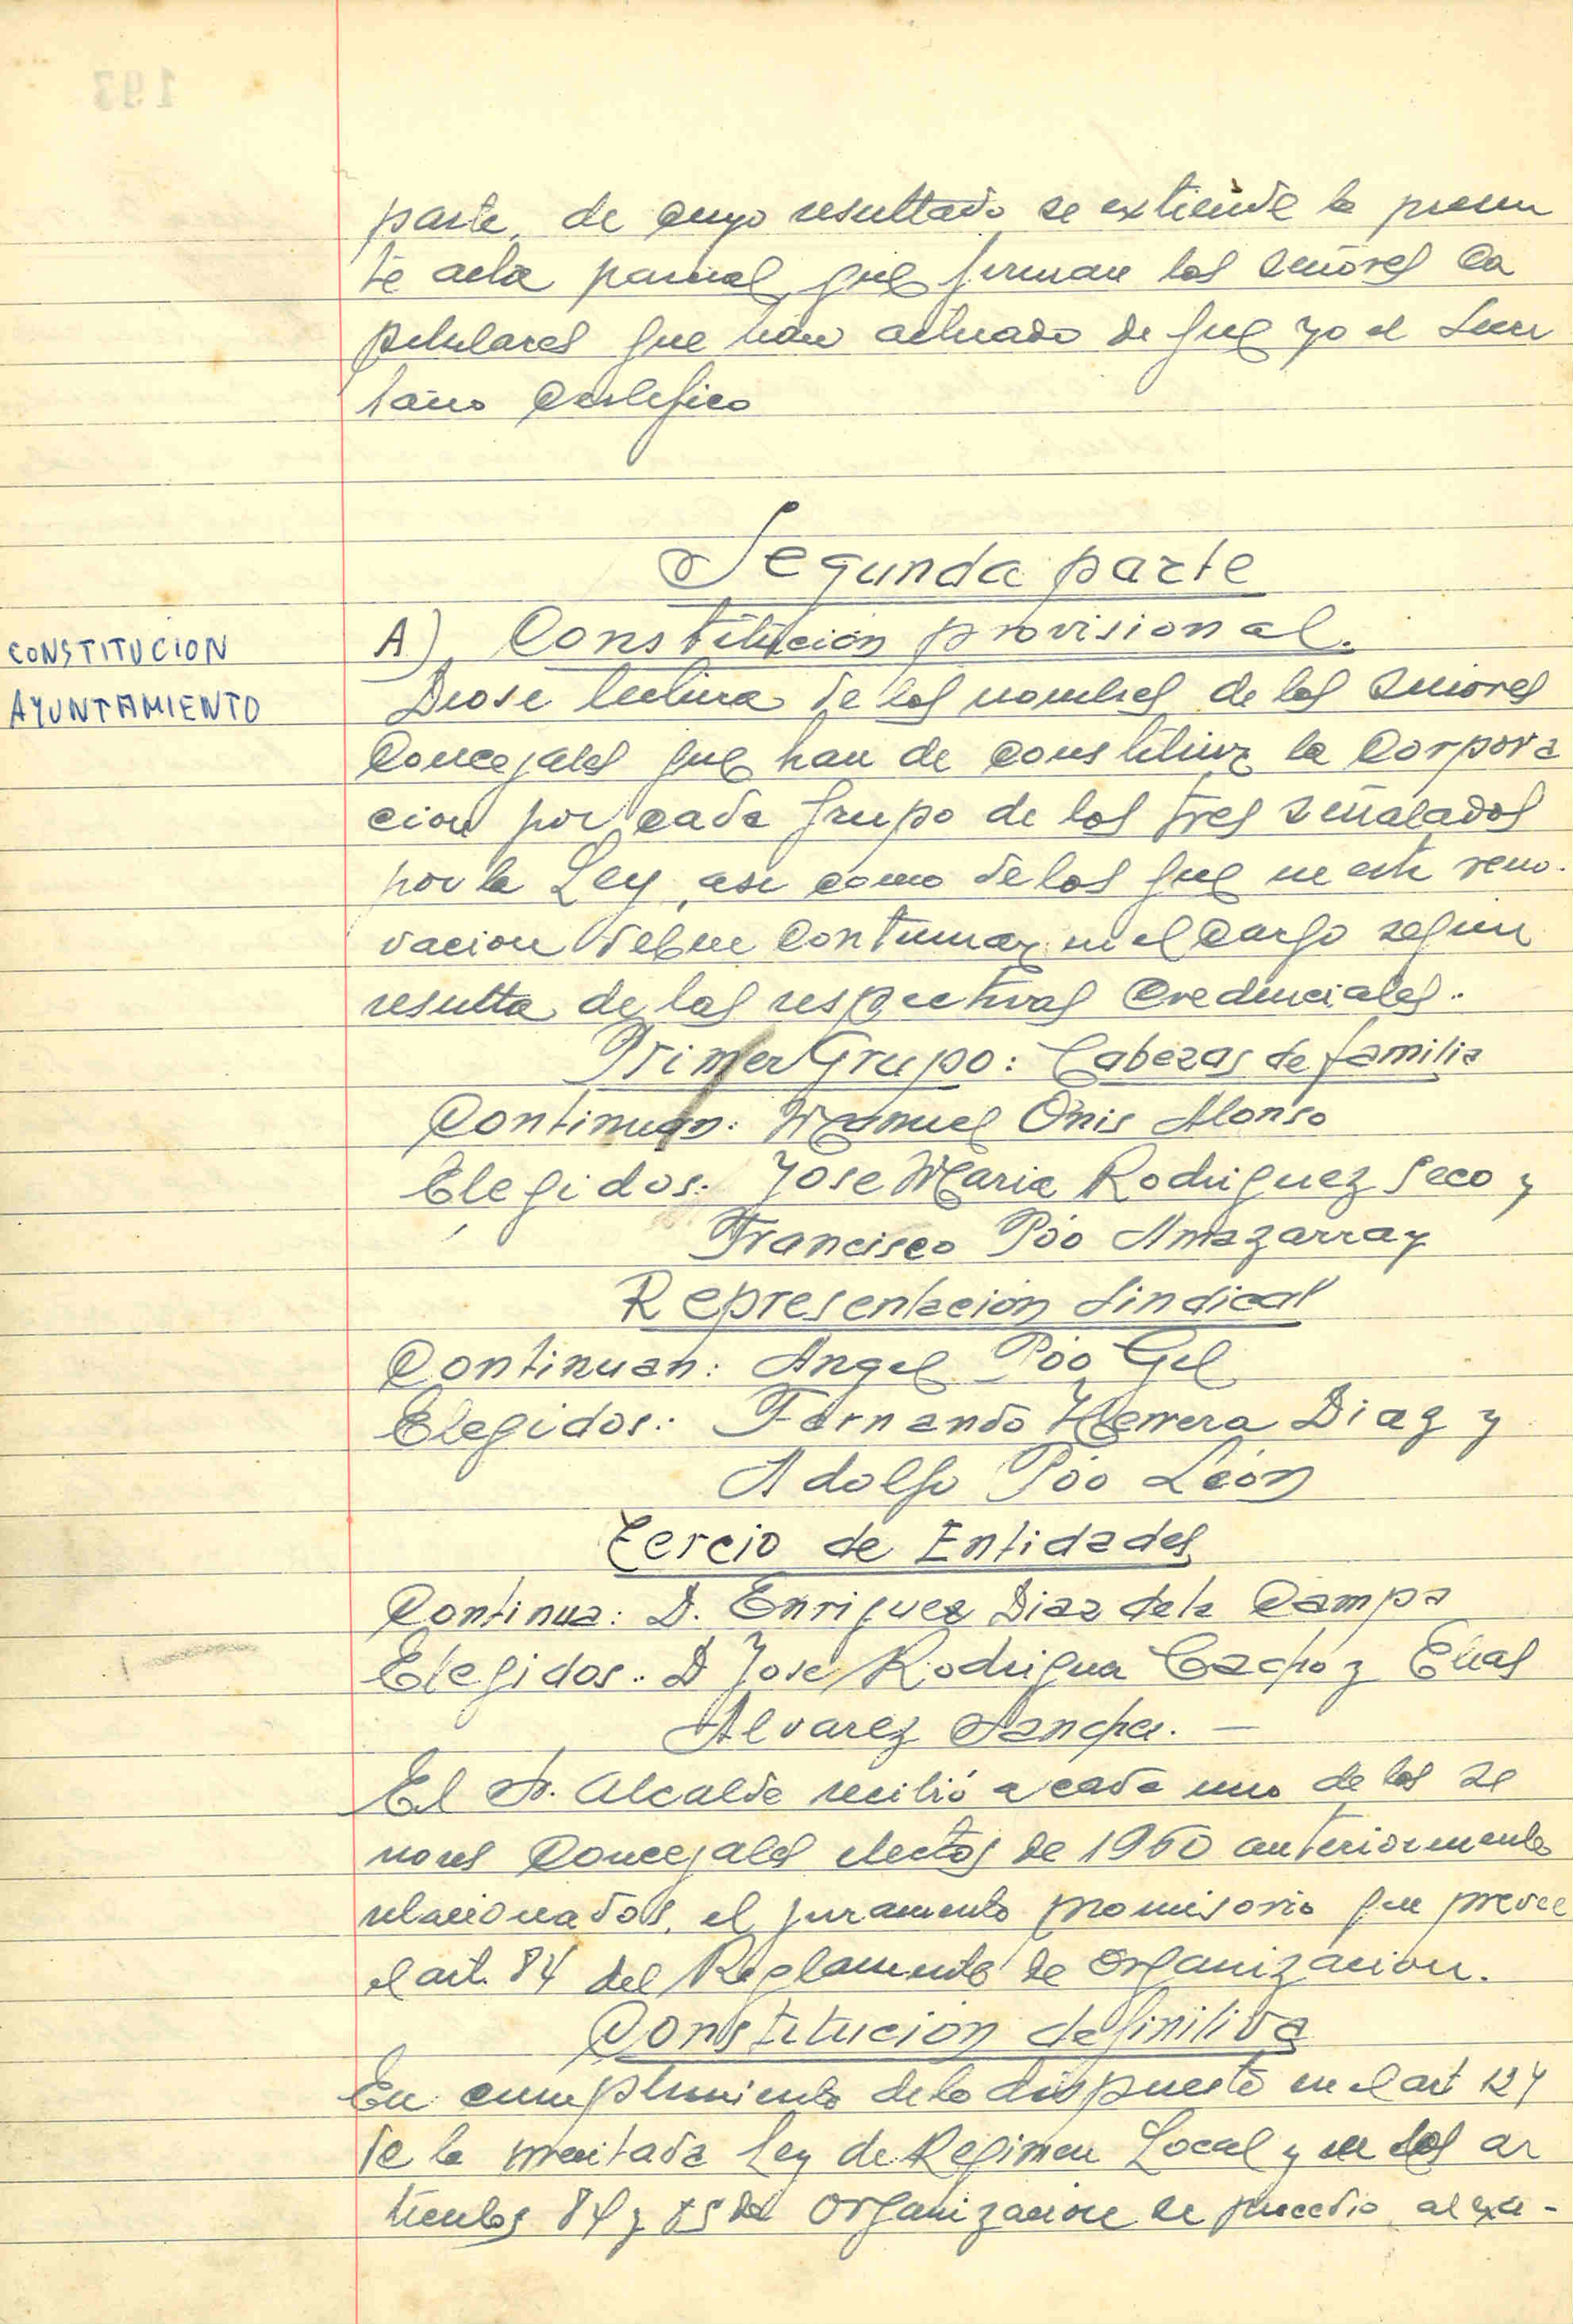 parte, de cuyo resultado se extiende la presen
te acta parcial que firman los señores Ca
pitulares que han actuado de que yo el Secre
tario Certifico
Segunda parte
A) Constitución provisional.
CONSTITUCION
AYUNTAMIENTO
Diose lectura de los nombres de los señores
Concejales que han de constituir la Corpora
cion por cada grupo de los tres señalados
por la Ley, asi como de los que en esta reno-
vacion deben continuar en el cargo segun
resulta de las respectivas Credenciales.
Primer Grupo: Cabezas de familia
Continuan: Manuel Onis Alonso
Elegidos: Jose Maria Rodriguez Seco y
Francisco Póo Amazarray
Representación Sindical
Continuan: Angel Póo Gil
Elegidos: Fernando Herrera Diaz y
Adolfo Póo León
Tercio de Entidades
Continua: D. Enrique Diaz de la Campa
Elegidos: D Jose Rodriguez Cacho y Elias
Alvarez Sanchez. —
El Sr. Alcalde recibió a cada uno de los se
ñores Concejales electos de 1960 anteriormente
relacionados, el juramento promisorio que prevee
el art. 84 del Reglamento de Organizacion.
Constitución definitiva
En cumplimiento de lo dispuesto en el art 124
de la meritada Ley de Regimen Local y en los ar
ticulos 84 y 85 de Organizacion se procedio al exa-
193